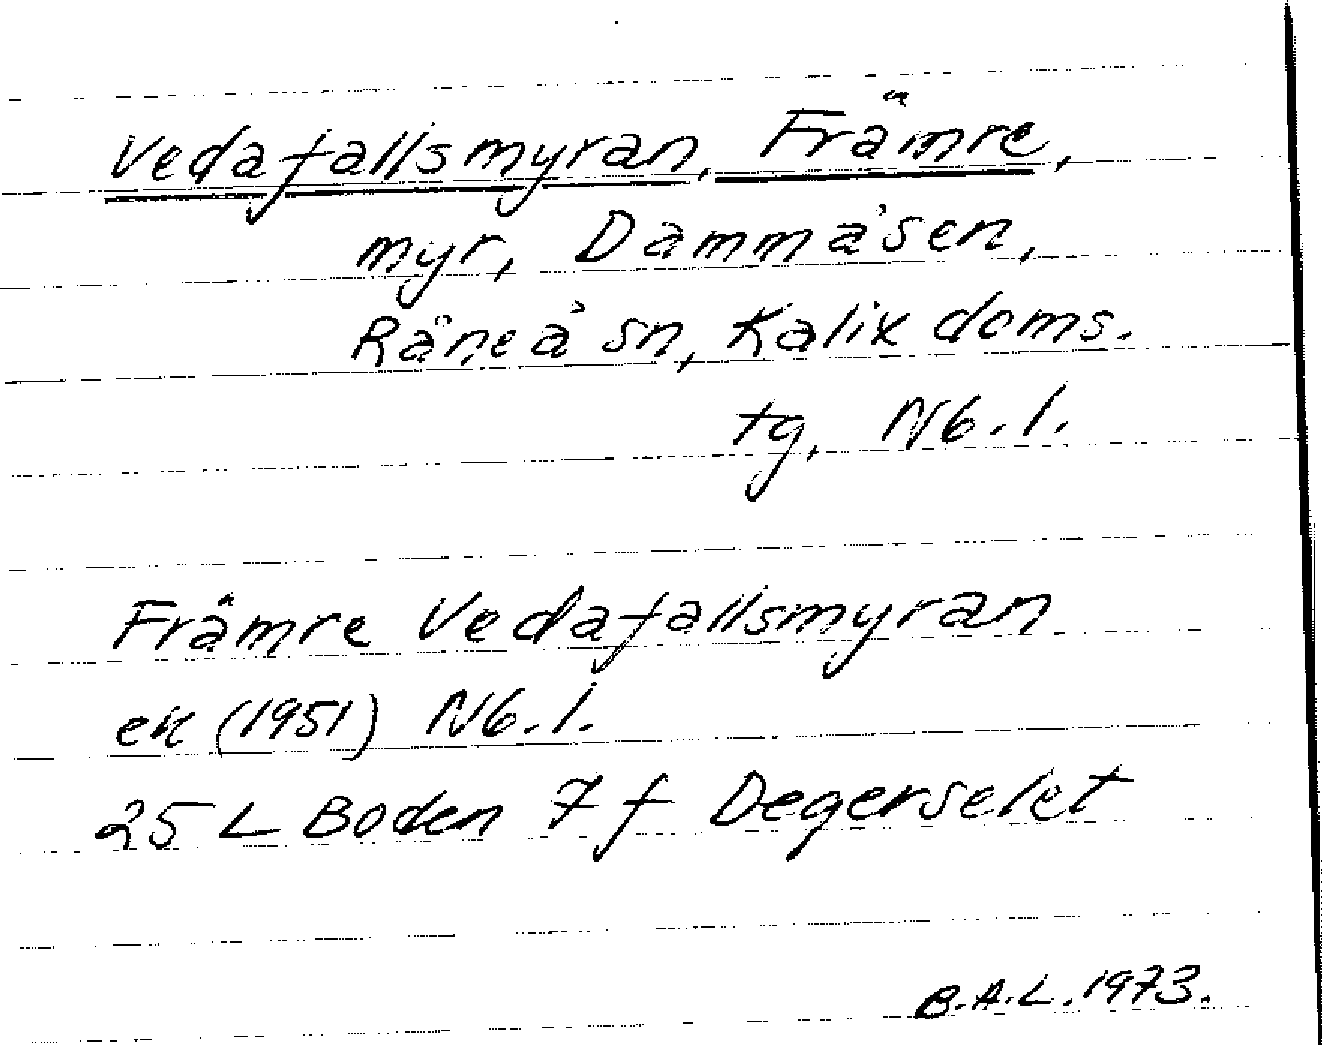 Vedafallsmyran, Främre,
myr, Dammåsen,
Råneå sn, Kalix doms.
tg, Nb. l.
Främre Vedafallsmyran
ek (1951) Nb. l.
25 L Boden 7 f Degerselet
B.A.L. 1973.